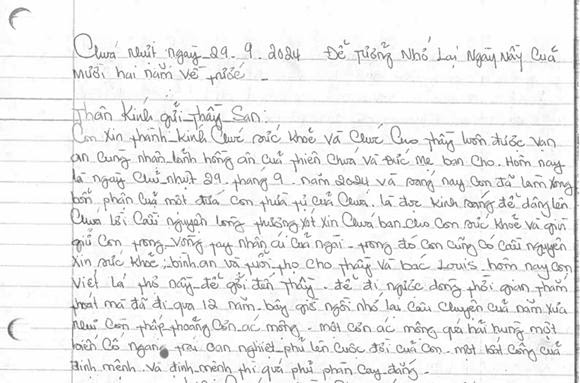 Chúa nhựt ngày 29. 9. 2024 Để Tưởng Nhớ Lại Ngày Này Của
Mười hai năm về trước -
Thân Kính gửi Thầy San:
Con Xin thành kính Chúc sức khoẻ và Chúc Cho thầy luôn được vạn
an cùng nhận lãnh hồng ân của thiên Chúa và Đức Mẹ ban Cho. Hôm nay
là ngày Chủ nhựt 29. tháng 9. năm 2024 và sáng nay Con đã làm xong
bổn phận của một đứa con của Chúa. là đọc kinh sáng để dâng lên
Chúa lời Cầu nguyện lòng thương xót xin Chúa ban Cho Con sức khoẻ và gìn
giữ Con trong vòng tay nhân ái của ngài - trong đó Con cũng Có cầu nguyện
Xin sức khoẻ, bình an và tuổi thọ cho thầy và bác Louis. hôm nay con
Viết lá thơ này để gởi đến thầy. để đi ngược dòng thời gian thấm
thoát mà đã đi qua 12 năm. bây giờ ngồi nhớ lại câu chuyện của năm xưa
Con thấp thoảng Cơn ác mộng - một cơn ác mộng quá hãi hùng một
biến Cố ngang trái oan nghiệt phủ lên cuộc đời của Con - một của
định mệnh và định mệnh thì quá phũ phàng Cay đắng.